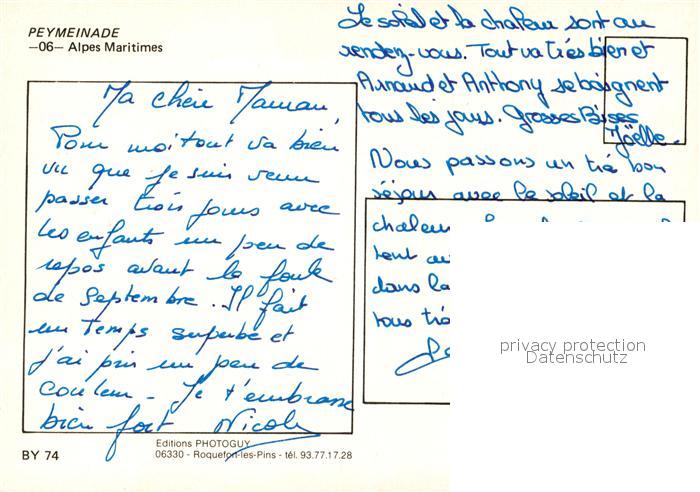 PEYMEINADE
-06- Alpes Maritimes
Ma chère Maman,
Pour moi tout va bien
vu que je suis venu
passer trois jours avec
les enfants un peu de
repos avant la foule
de Septembre. Il fait
un temps superbe et
j'ai pris un peu de
couleur - Je t'embrasse
bien fort Nicole
Le soleil et la chaleur sont au
rendez-vous. Tout va très bien et
Arnaud et Anthony se baignent
tous les jours. Grosses Bises
Joëlle -
Nous passons un trè bon
séjour avec le soleil et la
chaleur
tent au
dans la
tous trè
privacy protection
Datenschutz
BY 74
Editions PHOTOGUY
06330 - Roquefort-les-Pins - tél. 93.77.17.28